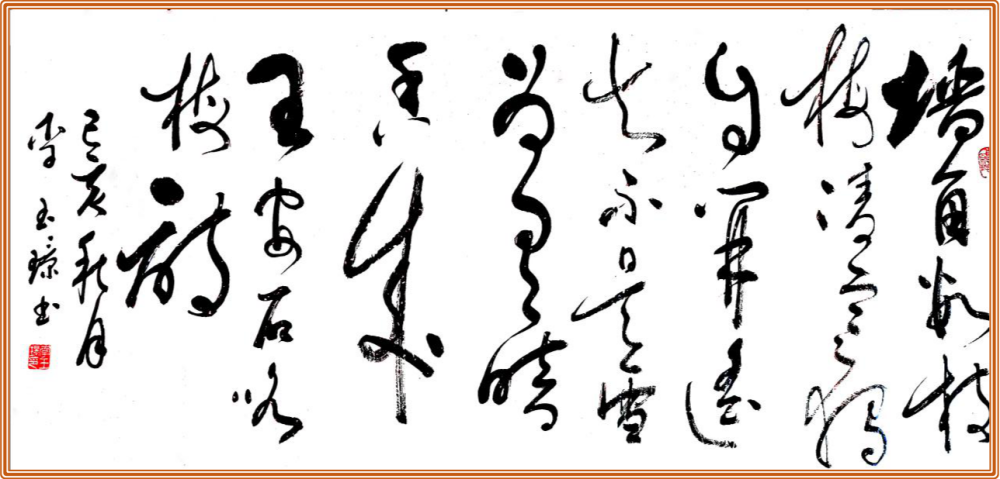 墙角数枝
梅凌寒独
自开遥
知不是雪
为有暗
香来
王安石咏
梅诗
己亥秋月
李玉琼书